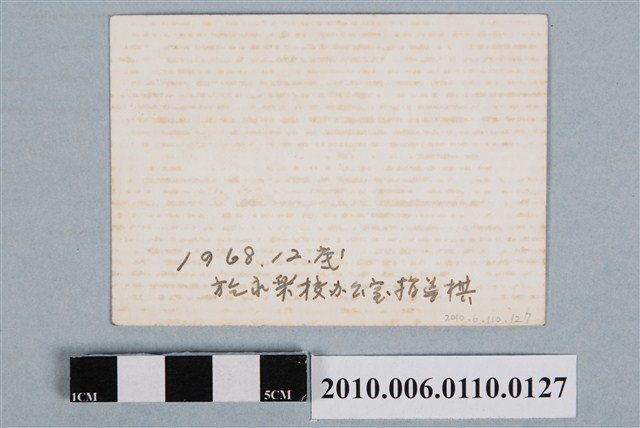 1968.12.底
於永樂校办公室指导棋
2010.6.110.127
1CM
5CM
2010.006.0110.0127